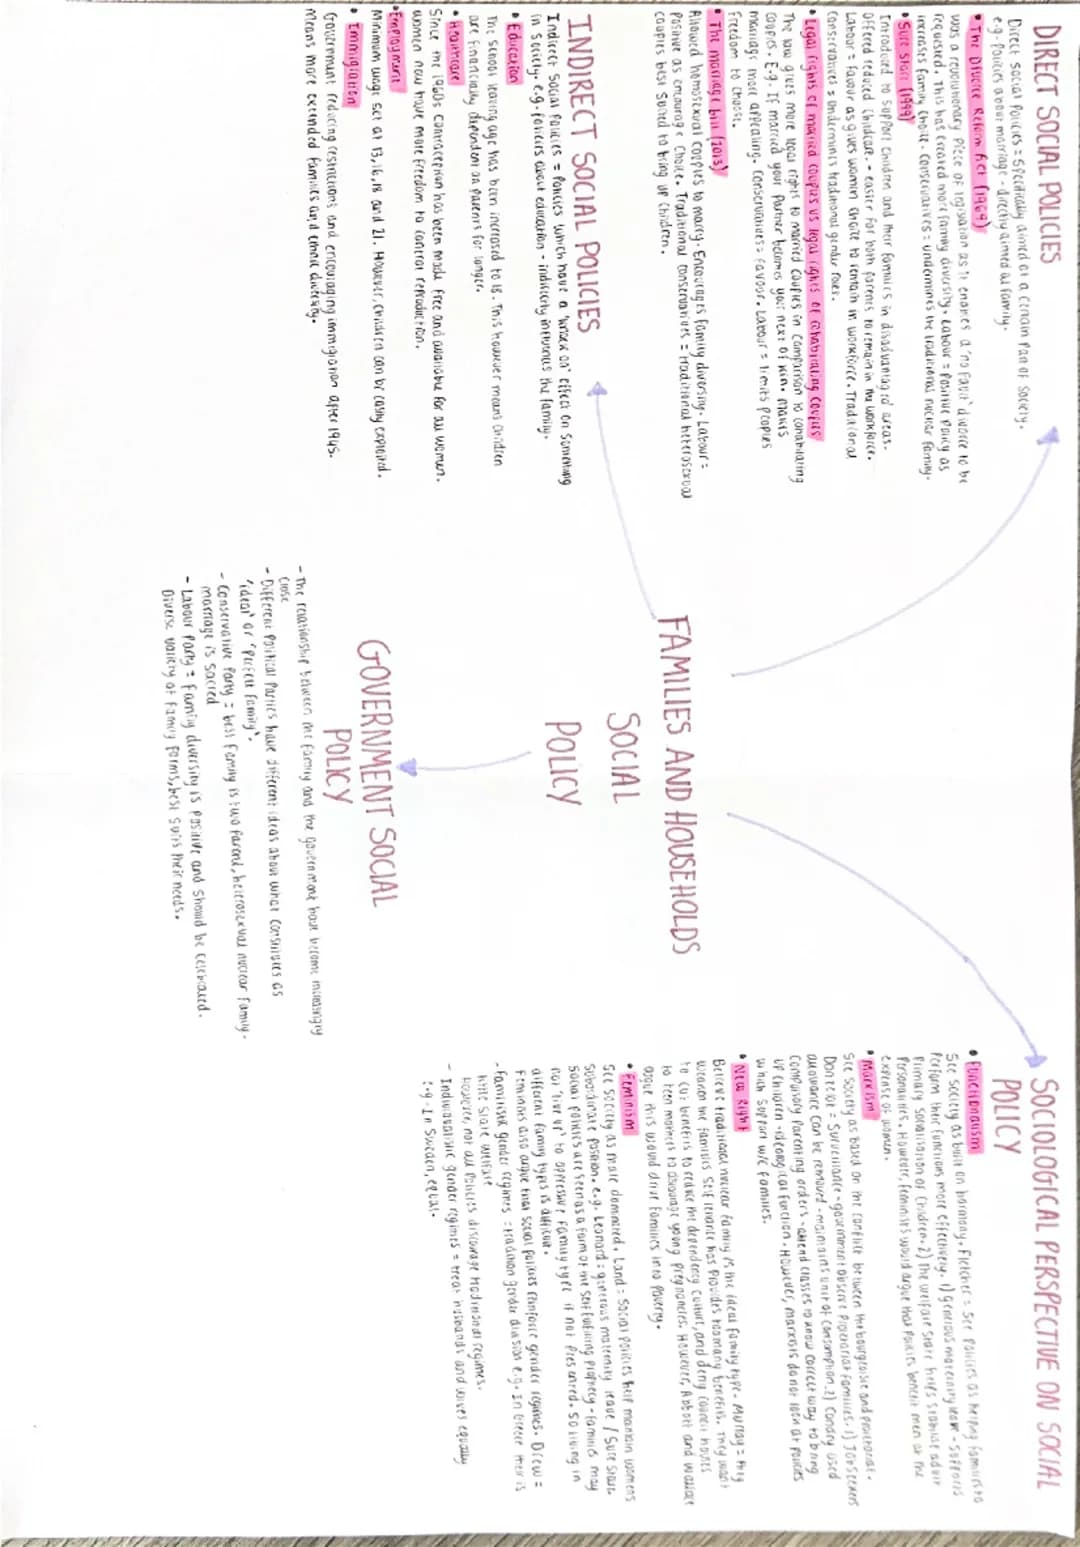 DIRECT SOCIAL POLICIES
Direct Social Policies = Specifically aimed at a certain part of society.
e.g. Policies about marriage - directly aimed at family.
• The Divorce Reform Act (1969)
was a revolutionary piece of legislation as it enables a 'no fault' divorce to be
requested. This has created more family diversity. Labour = Positive Policy as
increases family choice. Conservatives = undermines the traditional nuclear family.
• Sure Start (1999)
Introduced to support children and their families in disadvantaged areas.
Offered reduced childcare - easier for both parents to remain in the workforce.
Labour = favour as gives women choice to remain in workforce. Traditional
Conservatives = Undermines traditional gender roles.
• Legal rights of married couples vs legal rights of cohabitating couples
The law gives more legal rights to married couples in comparison to cohabitating
couples. E.g. If married your Partner becomes your next of kin. Makes
marriage more appealing. Conservatives = favour. Labour = limits peoples
freedom to choose.
• The marriage bill (2013)
Allowed homosexual couples to marry. Encourages family diversity. Labour =
Positive as encourage choice. Traditional conservatives = traditional heterosexual
couples best suited to bring up children.
INDIRECT SOCIAL POLICIES
Indirect Social Policies = Policies which have a 'knock on' effect on something
in society. e.g. Policies about education - indirectly influences the family.
• Education
The school leaving age has been increased to 18. This however means children
are financially dependent on parents for longer.
• Healthcare
Since the 1960s contraception has been made free and available for all women.
women now have more freedom to control reproduction.
• Employment
Minimum wage set at 13, 16, 18 and 21. However, children can be easily exploited.
• Immigration
Government reducing restrictions and encouraging immigration after 1945.
Means more extended families and ethnic diversity.
FAMILIES AND HOUSEHOLDS
SOCIAL
POLICY
GOVERNMENT SOCIAL
POLICY
- The relationship between the family and the government have become increasingly
close
- Different Political Parties have different ideas about what constitutes as
'ideal' or 'perfect family'.
- Conservative Party = best family is two parent, heterosexual nuclear family.
marriage is sacred
- Labour Party = family diversity is positive and should be celebrated.
Diverse variety of family forms, best suits their needs.
SOCIOLOGICAL PERSPECTIVE ON SOCIAL
POLICY
• Functionalism
See society as built on harmony. Fletcher = See policies as helping families to
Perform their functions more effectively. 1) Generous maternity leave - supports
Primary socialisation of children. 2) The welfare state helps stabilise adult
Personalities. However, feminists would argue that policies benefit men at the
expense of women.
• Marxism
See society as based on the conflict between the bourgeoisie and proletariat.
Donzelot = Surveillance - government observe proletariat families. 1) Job seekers
allowance can be removed - maintains unit of consumption. 2) Condry used
compulsory parenting orders - attend classes to know correct way to bring
up children - ideological function. However, marxists do not look at policies
which support w/c families.
• New Right
Believe traditional nuclear family is the ideal family type. Murray = they
weaken the families self reliance has provides too many benefits. They want
to cut benefits to reduce the dependency culture, and deny council houses
to teen mothers to discourage young pregnancies. However, Abbott and Wallace
argue this would drive families into poverty.
• Feminism
See society as male dominated. Land = Social policies help maintain womens
subordinate position. e.g. Leonard = generous maternity leave / Sure Start.
Social policies are seen as a form of the self fulfilling prophecy - families may
not 'live up' to oppressive family type if not presented. So living in
different family types is difficult.
Feminists also argue that social policies reinforce gender regimes. Drew =
- Familistic gender regimes = tradition gender division e.g. In Greece their is
little state welfare
However, not all policies discourage traditional regimes.
- Individualistic gender regimes = treat husbands and wives equally
e.g. In Sweden, equal.